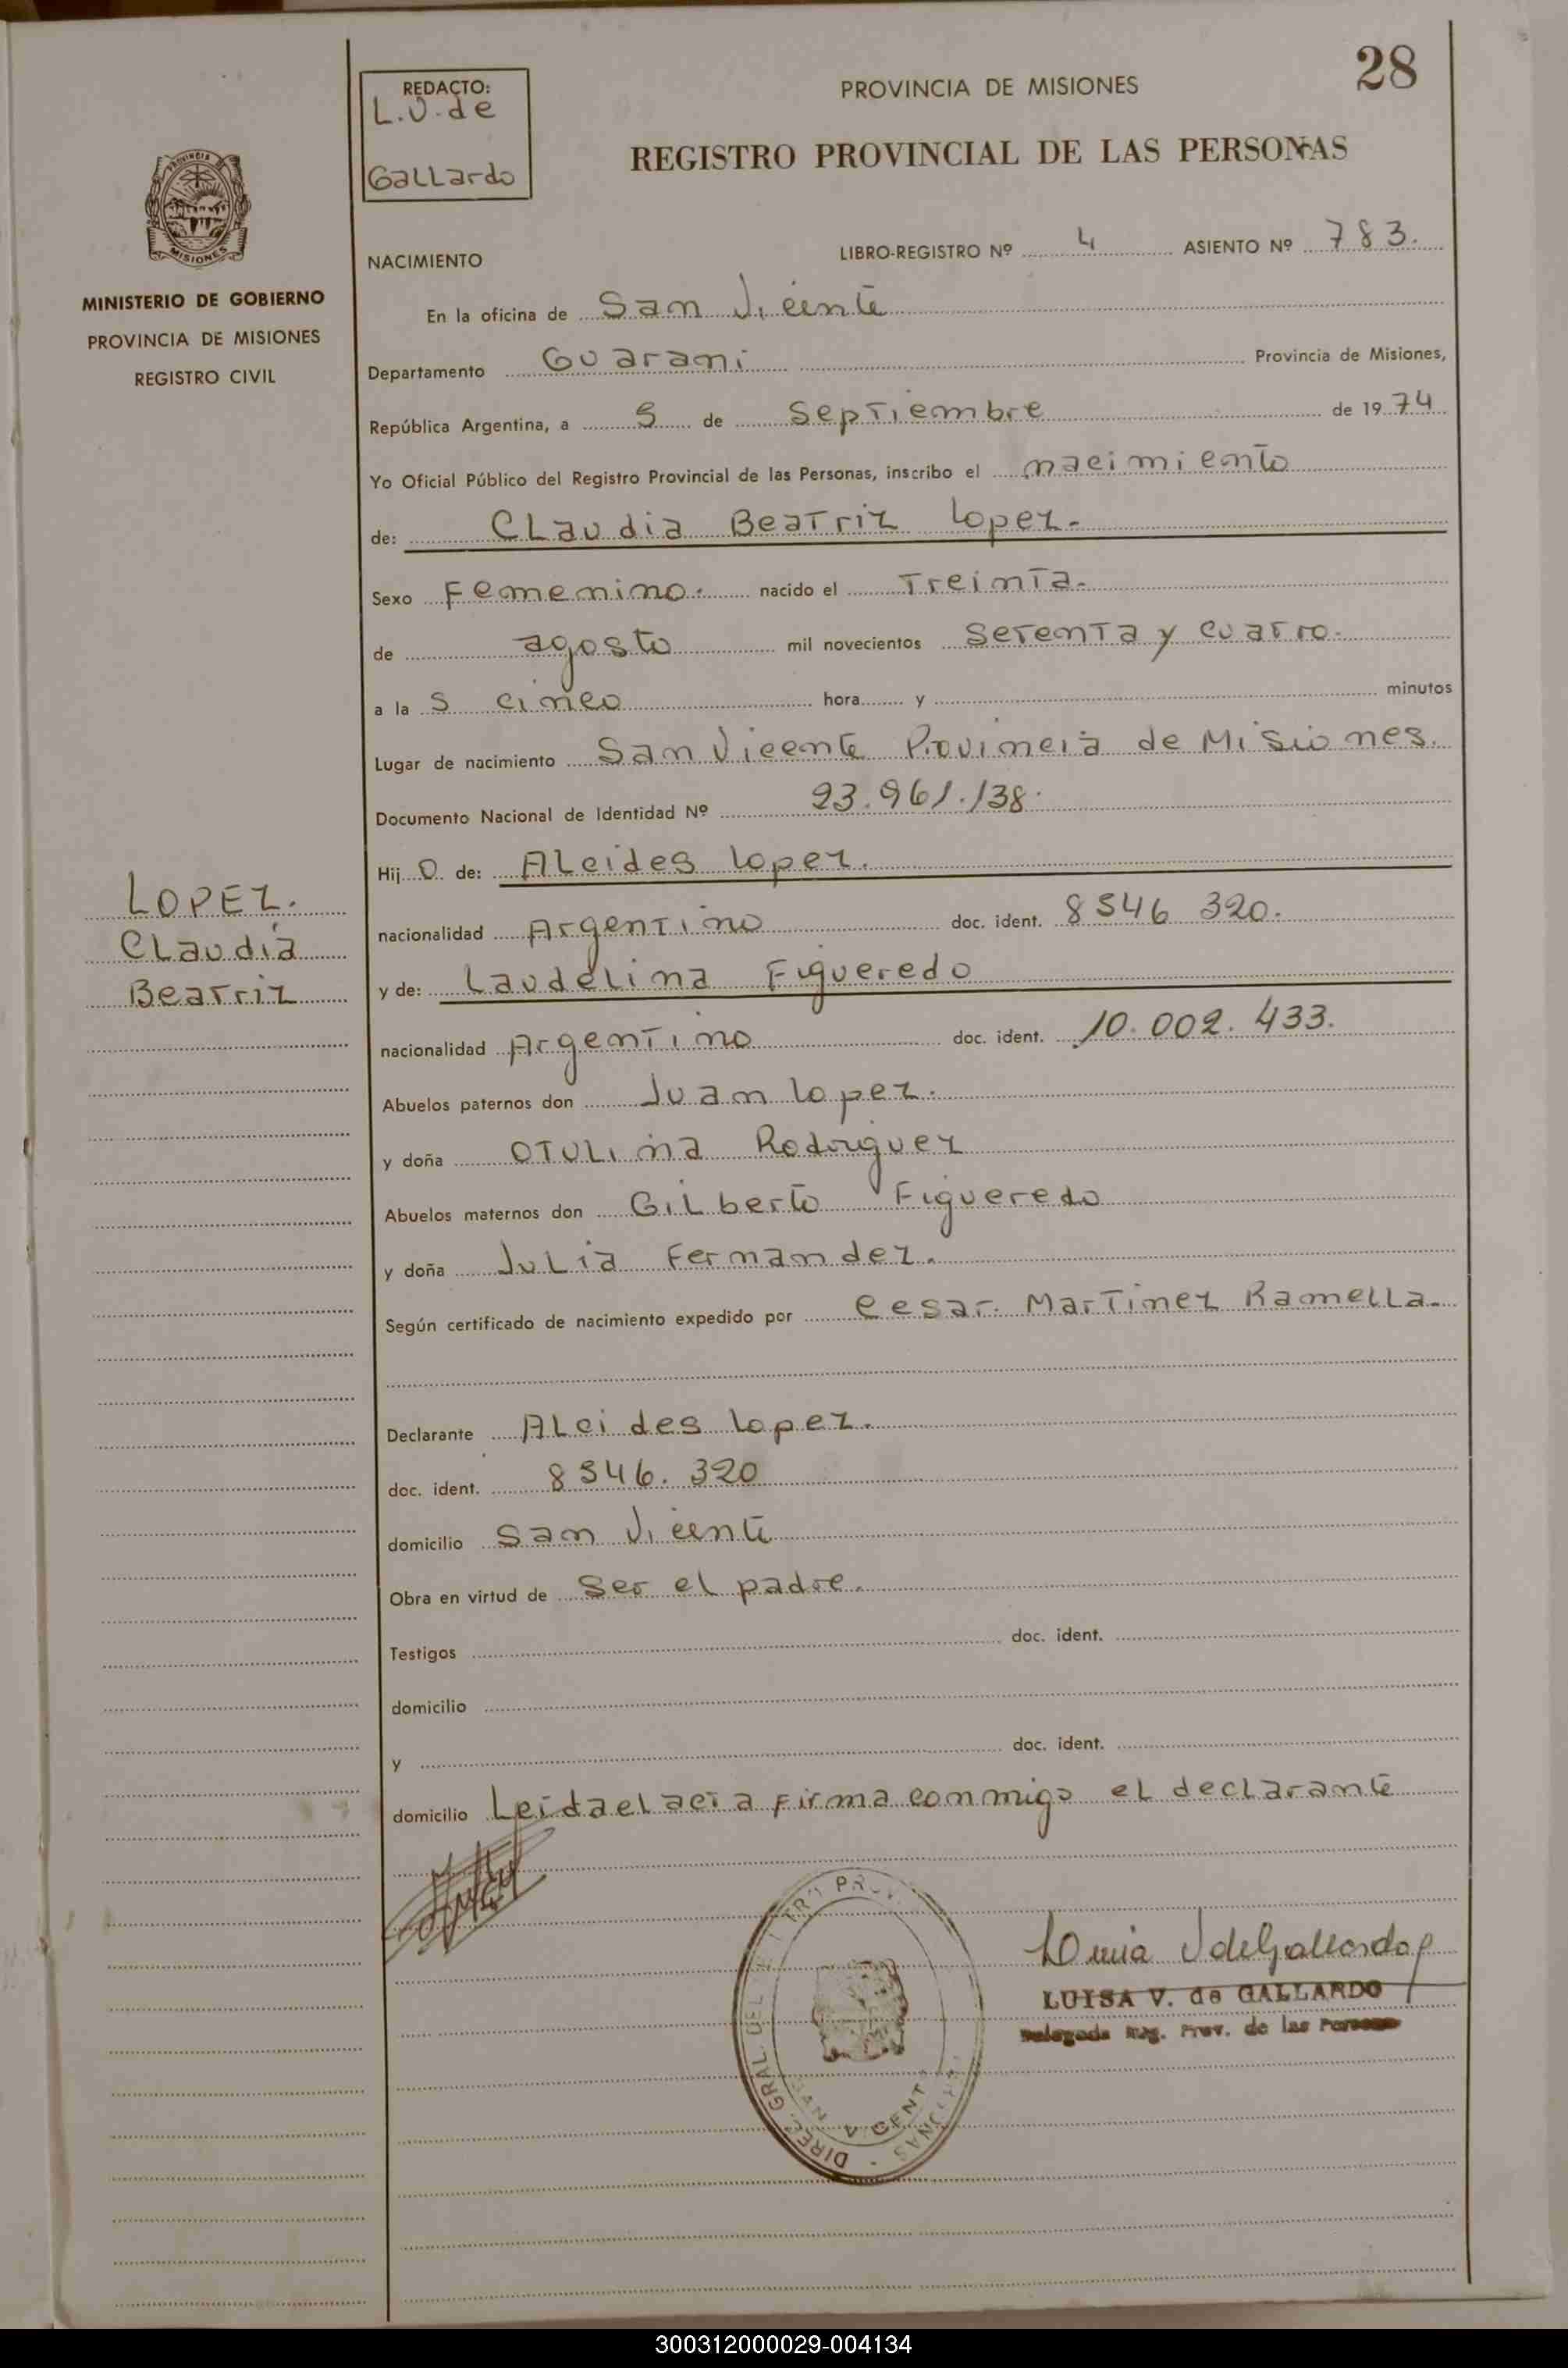 28
REDACTO:
L.V. de
Gallardo
PROVINCIA DE MISIONES
REGISTRO PROVINCIAL DE LAS PERSONAS
PROVINCIA DE
MISIONES
MINISTERIO DE GOBIERNO
PROVINCIA DE MISIONES
REGISTRO CIVIL
NACIMIENTO LIBRO-REGISTRO Nº 4 ASIENTO Nº 783.
En la oficina de San Vicente
Departamento Guarani Provincia de Misiones,
República Argentina, a 5 de Septiembre de 1974
Yo Oficial Público del Registro Provincial de las Personas, inscribo el nacimiento
de: Claudia Beatriz Lopez.
Sexo Femenino. nacido el Treinta.
de agosto mil novecientos setenta y cuatro.
a la s cinco hora y minutos
Lugar de nacimiento San Vicente Provincia de Misiones.
Documento Nacional de Identidad Nº 23.961.138.
Hij o de: Alcides Lopez.
nacionalidad Argentino doc. ident. 8546 320.
y de: Laudelina Figueredo
nacionalidad Argentino doc. ident. 10.002.433.
Abuelos paternos don Juan Lopez.
y doña Otulina Rodriguez
Abuelos maternos don Gilberto Figueredo
y doña Julia Fernandez.
Según certificado de nacimiento expedido por Cesar. Martinez Ramella.
Declarante Alcides Lopez.
doc. ident. 8546. 320
domicilio San Vicente
Obra en virtud de ser el padre.
Testigos doc. ident.
domicilio
y doc. ident.
domicilio Leida el acta firma conmigo el declarante
LOPEZ.
Claudia
Beatriz
Luisa V de Gallardo
LUISA V. de GALLARDO
Delegada Reg. Prov. de las Personas
DIREC. GRAL. DEL
300312000029-004134